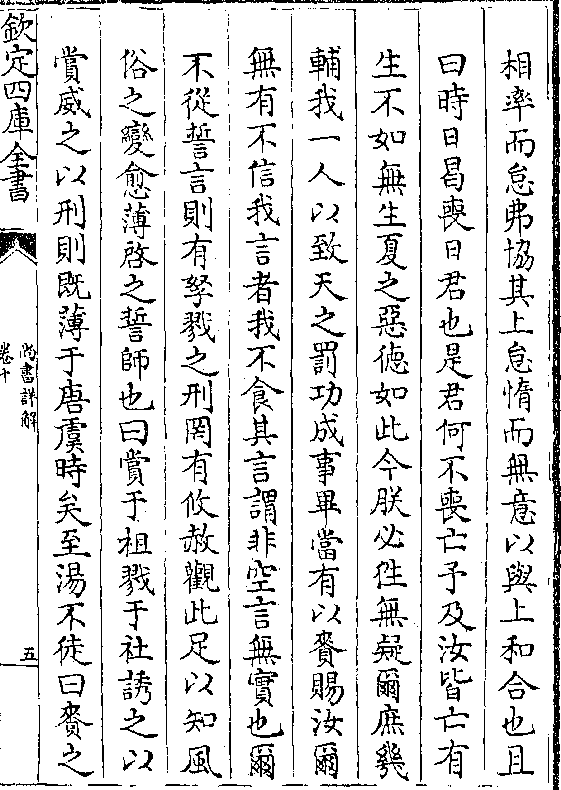 相率而怠弗協其上怠惰而無意以與上和合也且
曰時日曷喪日君也是君何不喪亡予及汝皆亡有
生不如無生夏之惡德如此今朕必徃無疑爾庶幾
輔我一人以致天之罰功成事畢當有以賚賜汝爾
無有不信我言者我不食其言謂非空言無實也爾
不從誓言則有孥戮之刑罔有攸赦觀此足以知風
俗之變愈薄啓之誓師也曰賞于祖戮于社誘之以
賞威之以刑則既薄于唐虞時矣至湯不徒曰賚之
欽定四庫全書
尚書詳解
卷十
五